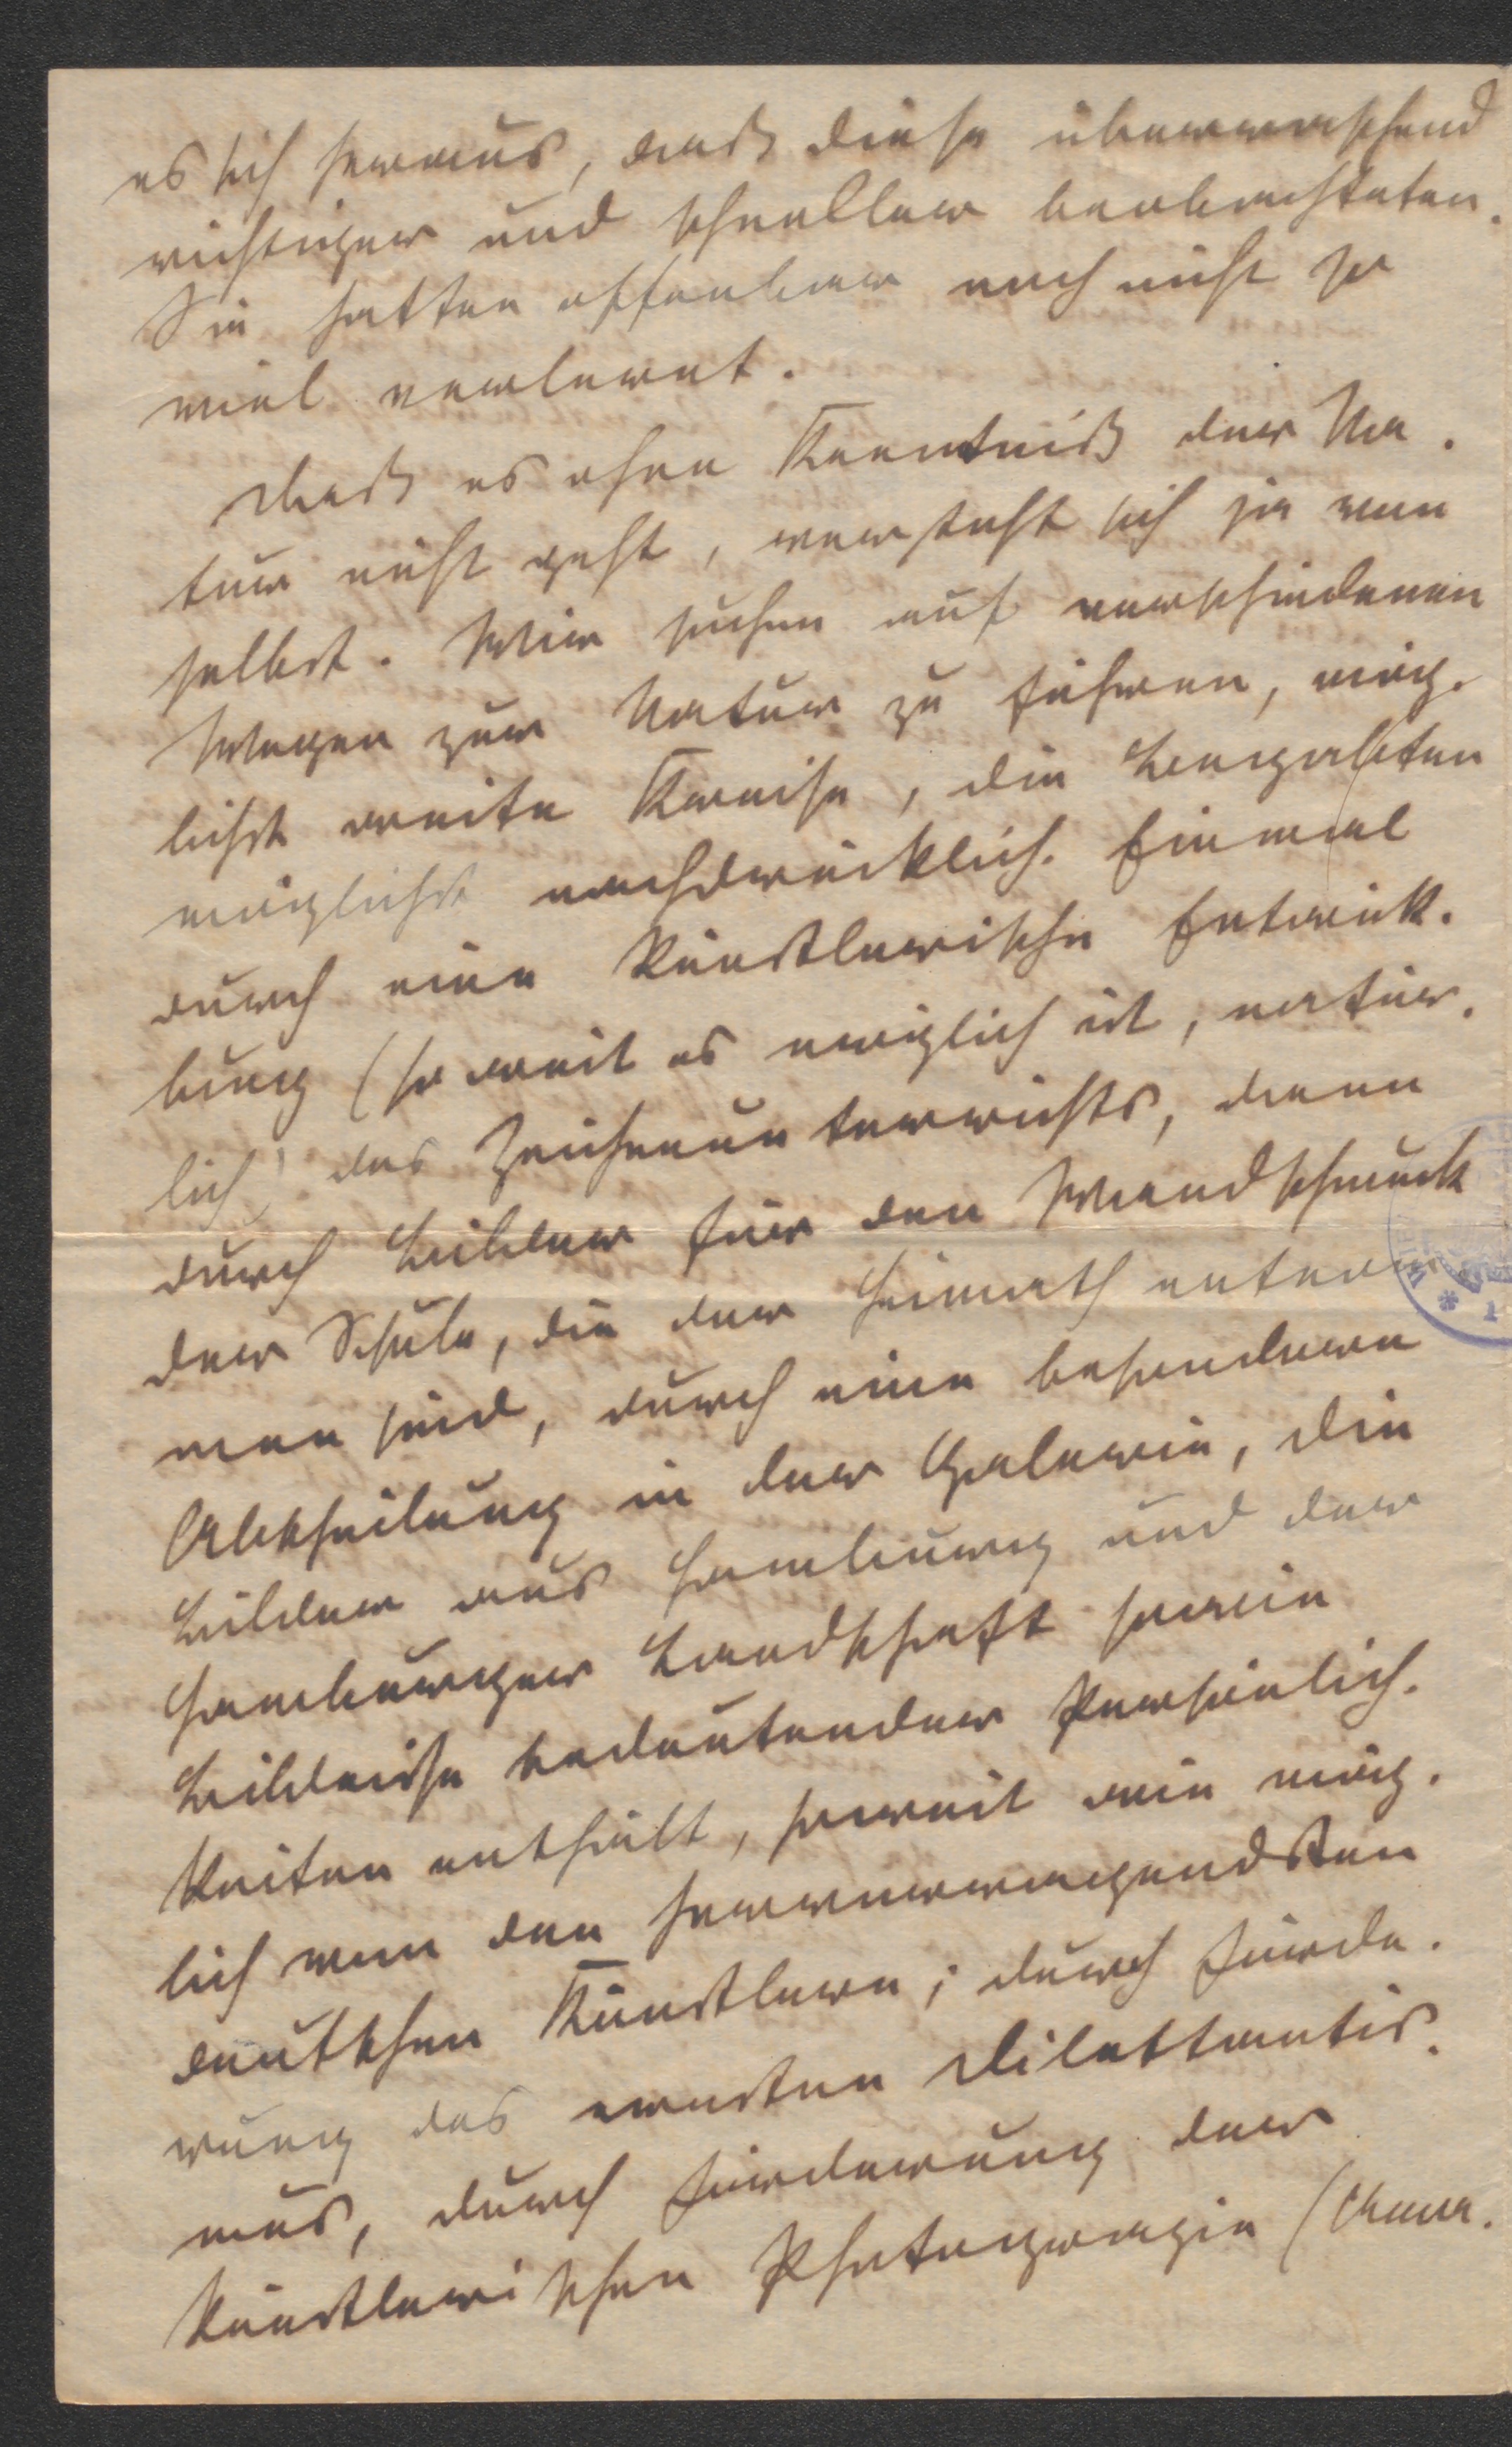 es sich heraus, daß diese überraschend
richtiger und schneller beobachteten.
Sie hatten offenbar noch nicht so
viel verlernt.
Daß es ohne Kenntniß der Na-
tur nicht geht, versteht sich ja von
selbst. Wir suchen auf verschiedenen
Wegen zur Natur zu führen, mög-
lichst weite Kreise, die Begabten
möglichst nachdrücklich. Einmal
durch eine künstlerische Entwick-
lung (so weit es möglich ist, natür-
lich) des Zeichenunterrichts, dann
durch Bilder für den Wandschmuck
der Schule, die der Heimath entnom-
men sind, durch eine besondere
Abtheilung in der Galerie, die
Bilder aus Hamburg und der
Hamburger Landschaft sowie
Bildnisse bedeutender Persönlich-
keiten enthält, soweit wie mög-
lich von den hervorragendsten
deutschen Künstlern; durch Förde-
rung des ernsten Dilettantis-
mus, durch Förderung der
künstlerischen Photograpie (Ama-